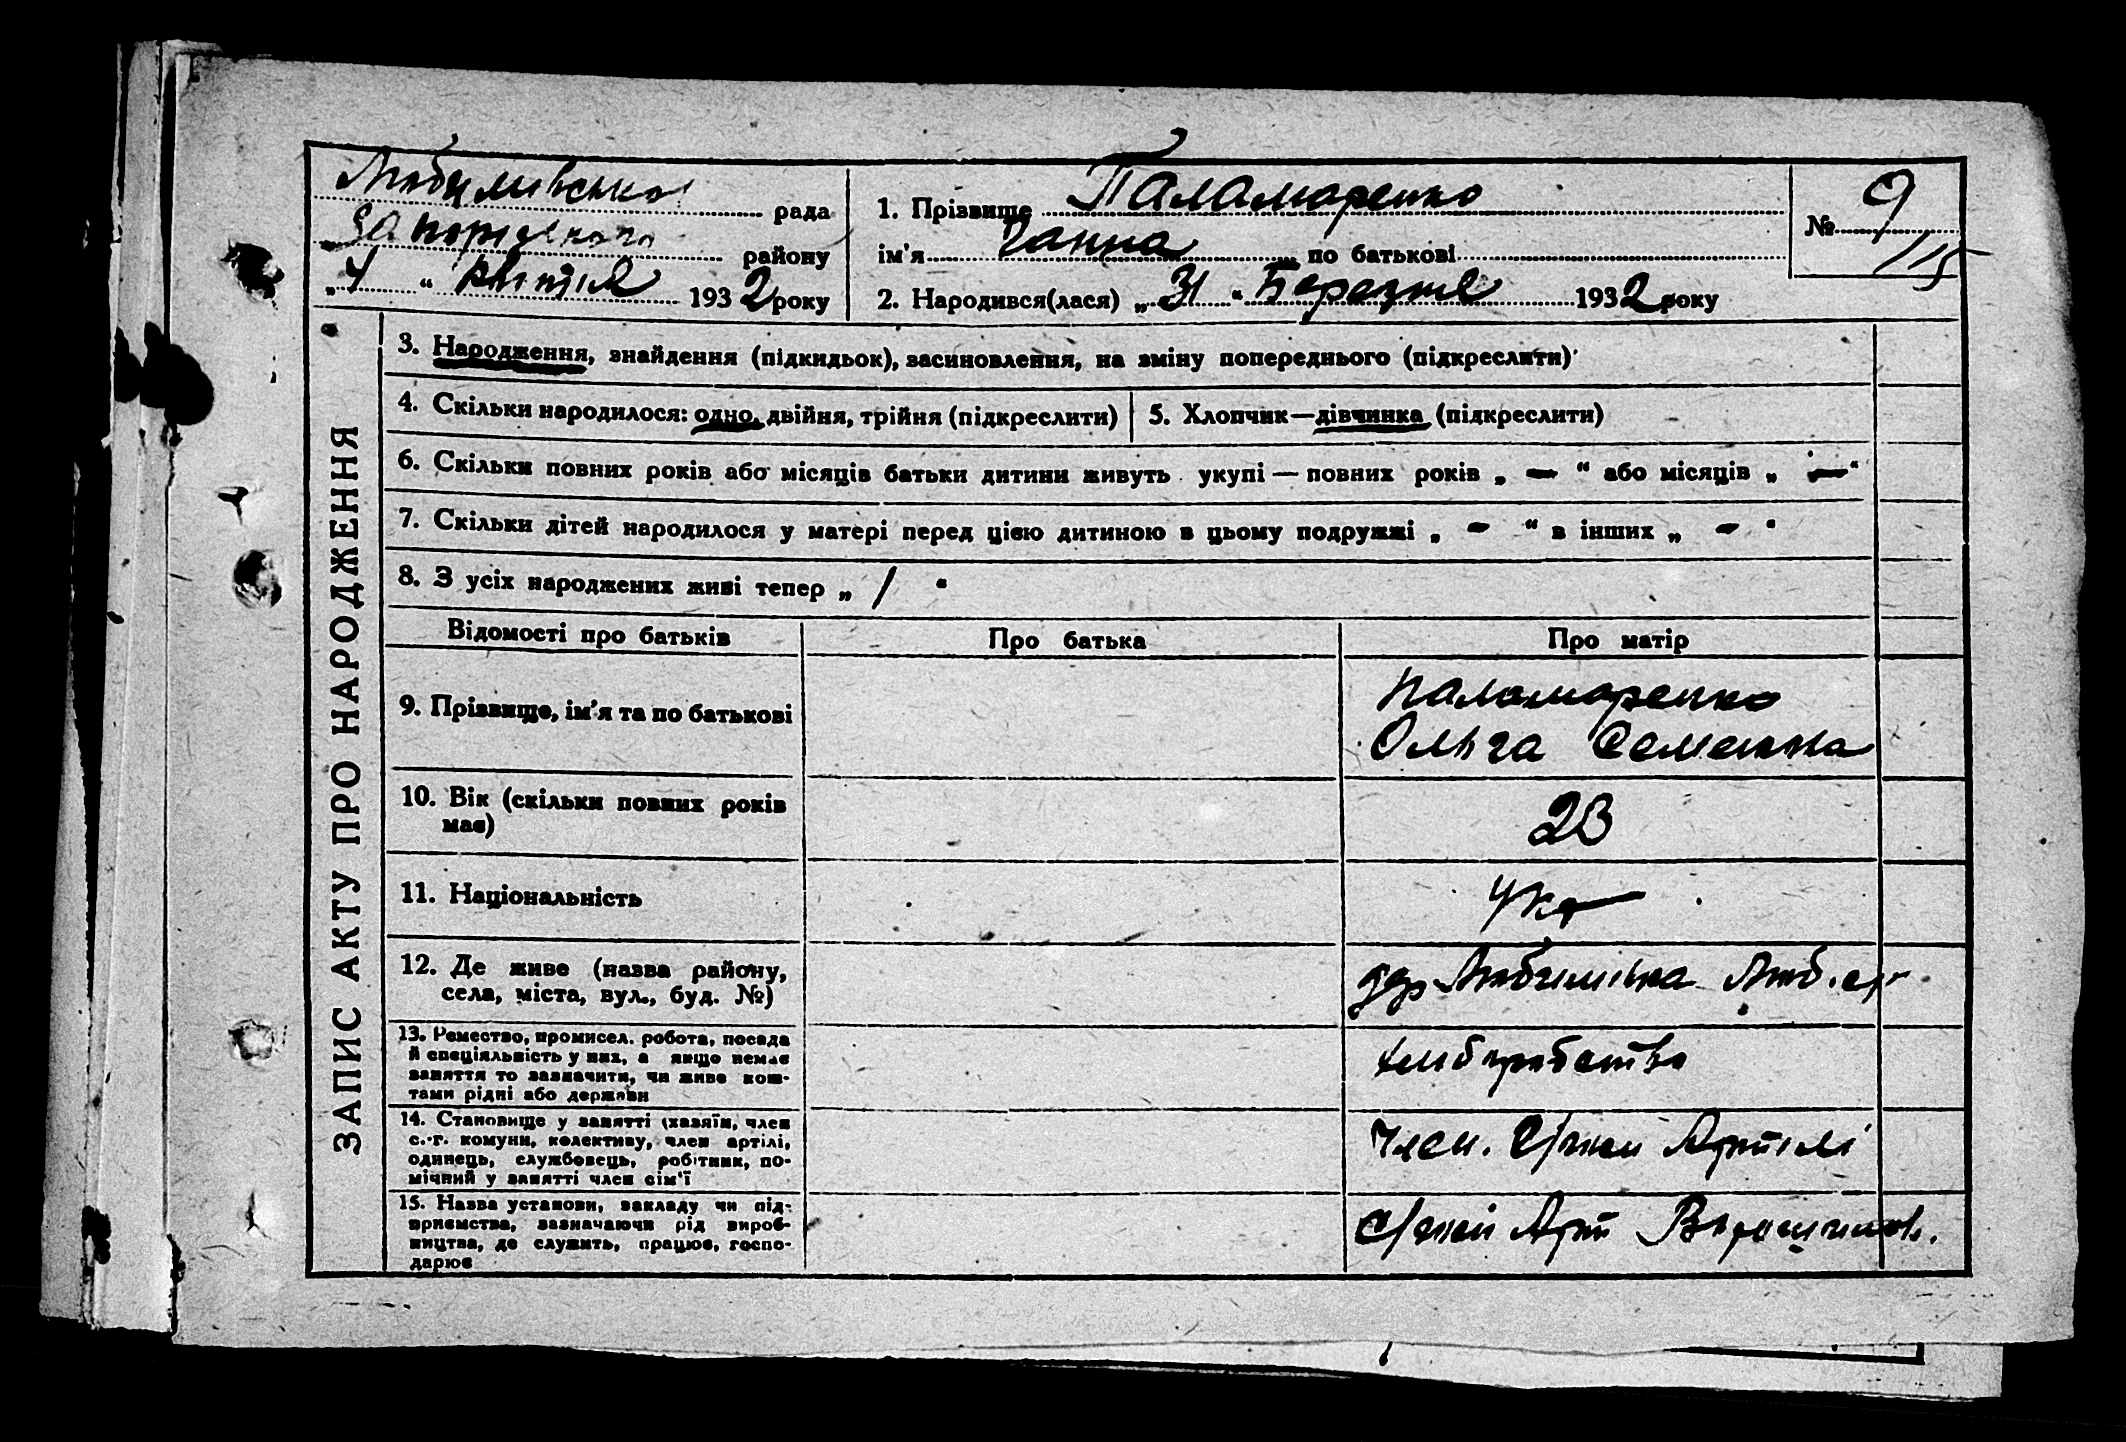 Любимівська рада
Запорізького району
„ 4 “ Квітня 1932 року
1. Прізвище Паламаренко
ім'я Ганна по батькові
2. Народився(лася) „ 31 “ Березня 1932 року
№ 9
/15
ЗАПИС АКТУ ПРО НАРОДЖЕННЯ
3. Народження, знайдення (підкидьок), засиновлення, на зміну попереднього (підкреслити)
4. Скільки народилося: одно, двійня, трійня (підкреслити)
5. Хлопчик—дівчинка (підкреслити)
6. Скільки повних років або місяців батьки дитини живуть укупі — повних років „ — “ або місяців „ — “
7. Скільки дітей народилося у матері перед цією дитиною в цьому подружжі „ - “ в інших „ - “
8. З усіх народжених живі тепер „ 1 “
Відомості про батьків
Про батька
Про матір
9. Прізвище, ім'я та по батькові
Паламаренко
Ольга Семенівна
10. Вік (скільки повних років
має)
23
11. Національність
Укр
12. Де живе (назва району,
села, міста, вул., буд. №)
дер Любимівка Люб.
13. Ремество, промисел. робота, посада
й спеціяльність у них, а якщо немає
заняття то зазначити, чи живе кош-
тами рідні або держави
хліборобство
14. Становище у занятті (хазяїн, член
с.-г. комуни, колективу, член артілі,
одинець, службовець, робітник, по-
мічний у занятті член сім'ї
Член. Артілі
15. Назва установи, закладу чи під-
приємства, зазначаючи рід вироб-
ництва, де служить, працює, госпо-
дарює
Арт